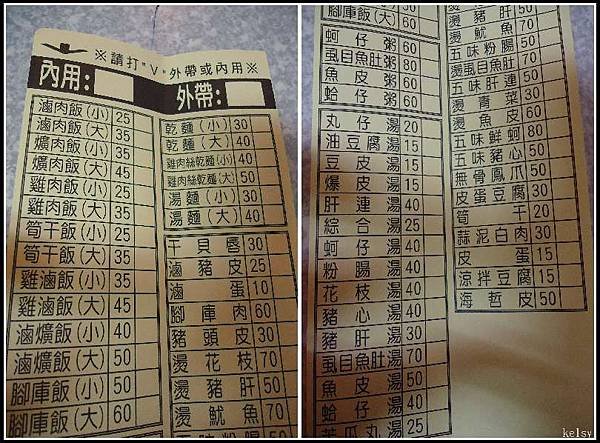 ※請打"V"外帶或內用※
內用:
外帶:
滷肉飯(小) 25
滷肉飯(大) 35
爌肉飯(小) 35
爌肉飯(大) 45
雞肉飯(小) 25
雞肉飯(大) 35
筍干飯(小) 25
筍干飯(大) 35
雞滷飯(小) 35
雞滷飯(大) 45
滷爌飯(小) 40
滷爌飯(大) 50
腳庫飯(小) 50
腳庫飯(大) 60
乾麵(小) 30
乾麵(大) 40
雞肉絲乾麵(小) 40
雞肉絲乾麵(大) 50
湯麵(小) 30
湯麵(大) 40
干貝唇 30
滷豬皮 25
滷蛋 10
腳庫肉 60
豬頭皮 30
燙花枝 70
燙豬肝 50
燙魷魚 70
五味粉腸 50
腳庫飯(大) 60
蚵仔粥 60
虱目魚肚粥 80
魚皮粥 60
蛤仔粥 60
丸仔湯 20
油豆腐湯 15
豆皮湯 15
爆皮湯 15
肝連湯 40
綜合湯 25
蚵仔湯 40
粉腸湯 40
花枝湯 40
豬心湯 40
豬肝湯 30
虱目魚肚湯 70
魚皮湯 50
蛤仔湯 40
苦瓜丸湯
燙豬肝 50
燙魷魚 70
五味粉腸 50
燙虱目魚肚 70
五味肝連 50
燙青菜 30
燙魚皮 60
五味鮮蚵 80
五味豬心 50
無骨鳳爪 50
皮蛋豆腐 30
筍干 20
蒜泥白肉 30
皮蛋 15
涼拌豆腐 15
海哲皮 50
kelsy